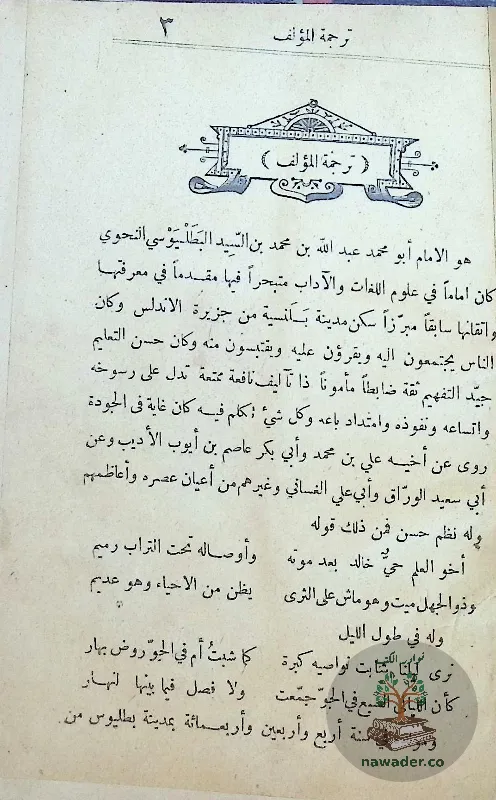 ترجمة المؤلف ٣
﴿ ترجمة المؤلف ﴾
هو الامام أبو محمد عبد الله بن محمد بن السّيِد البَطَلْيَوْسي النحوي
كان اماماً في علوم اللغات والآداب متبحراً فيها مقدماً في معرفتها
واتقانها سابقاً مبرّزاً سكن مدينة بَلَنسية من جزيرة الاندلس وكان
الناس يجتمعون اليه ويقرؤن عليه ويقتبسون منه وكان حسن التعليم
جيّد التفهيم ثقة ضابطاً مأموناً ذا تآليف نافعة ممتعة تدل على رسوخه
واتساعه ونفوذه وامتداد باعه وكل شيء تكلم فيه كان غاية في الجودة
روى عن أخيه علي بن محمد وأبي بكر عاصم بن أيوب الأديب وعن
أبي سعيد الورّاق وأبي علي الغساني وغيرهم من أعيان عصره وأعاظمهم
وله نظم حسن فمن ذلك قوله
أخو العلم حيٌّ خالد بعد موته وأوصاله تحت التراب رميم
وذو الجهل ميت وهو ماش على الثرى يظن من الأحياء وهو عديم
وله في طول الليل
ترى ليلنا شابت نواصيه كبرة كما شبتُ أم في الجوّ روض بهار
كأن الليالي السبع في الجوّ جمّعت ولا فصل فيما بينها لنهار
سنة أربع وأربعين وأربعمائة بمدينة بطليوس من
نوادر الكتب
nawader.co